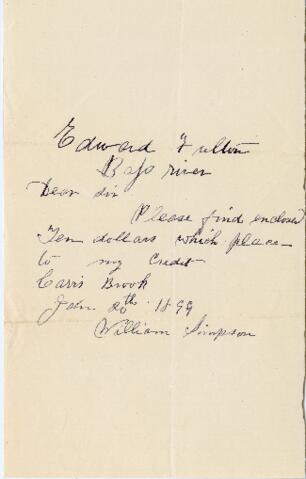 Edward Fulton
Bass river
Dear sir
Please find enclosed
Ten dollars which place
to my credit
Carrs Brook
Jan 20th 1899
William Simpson